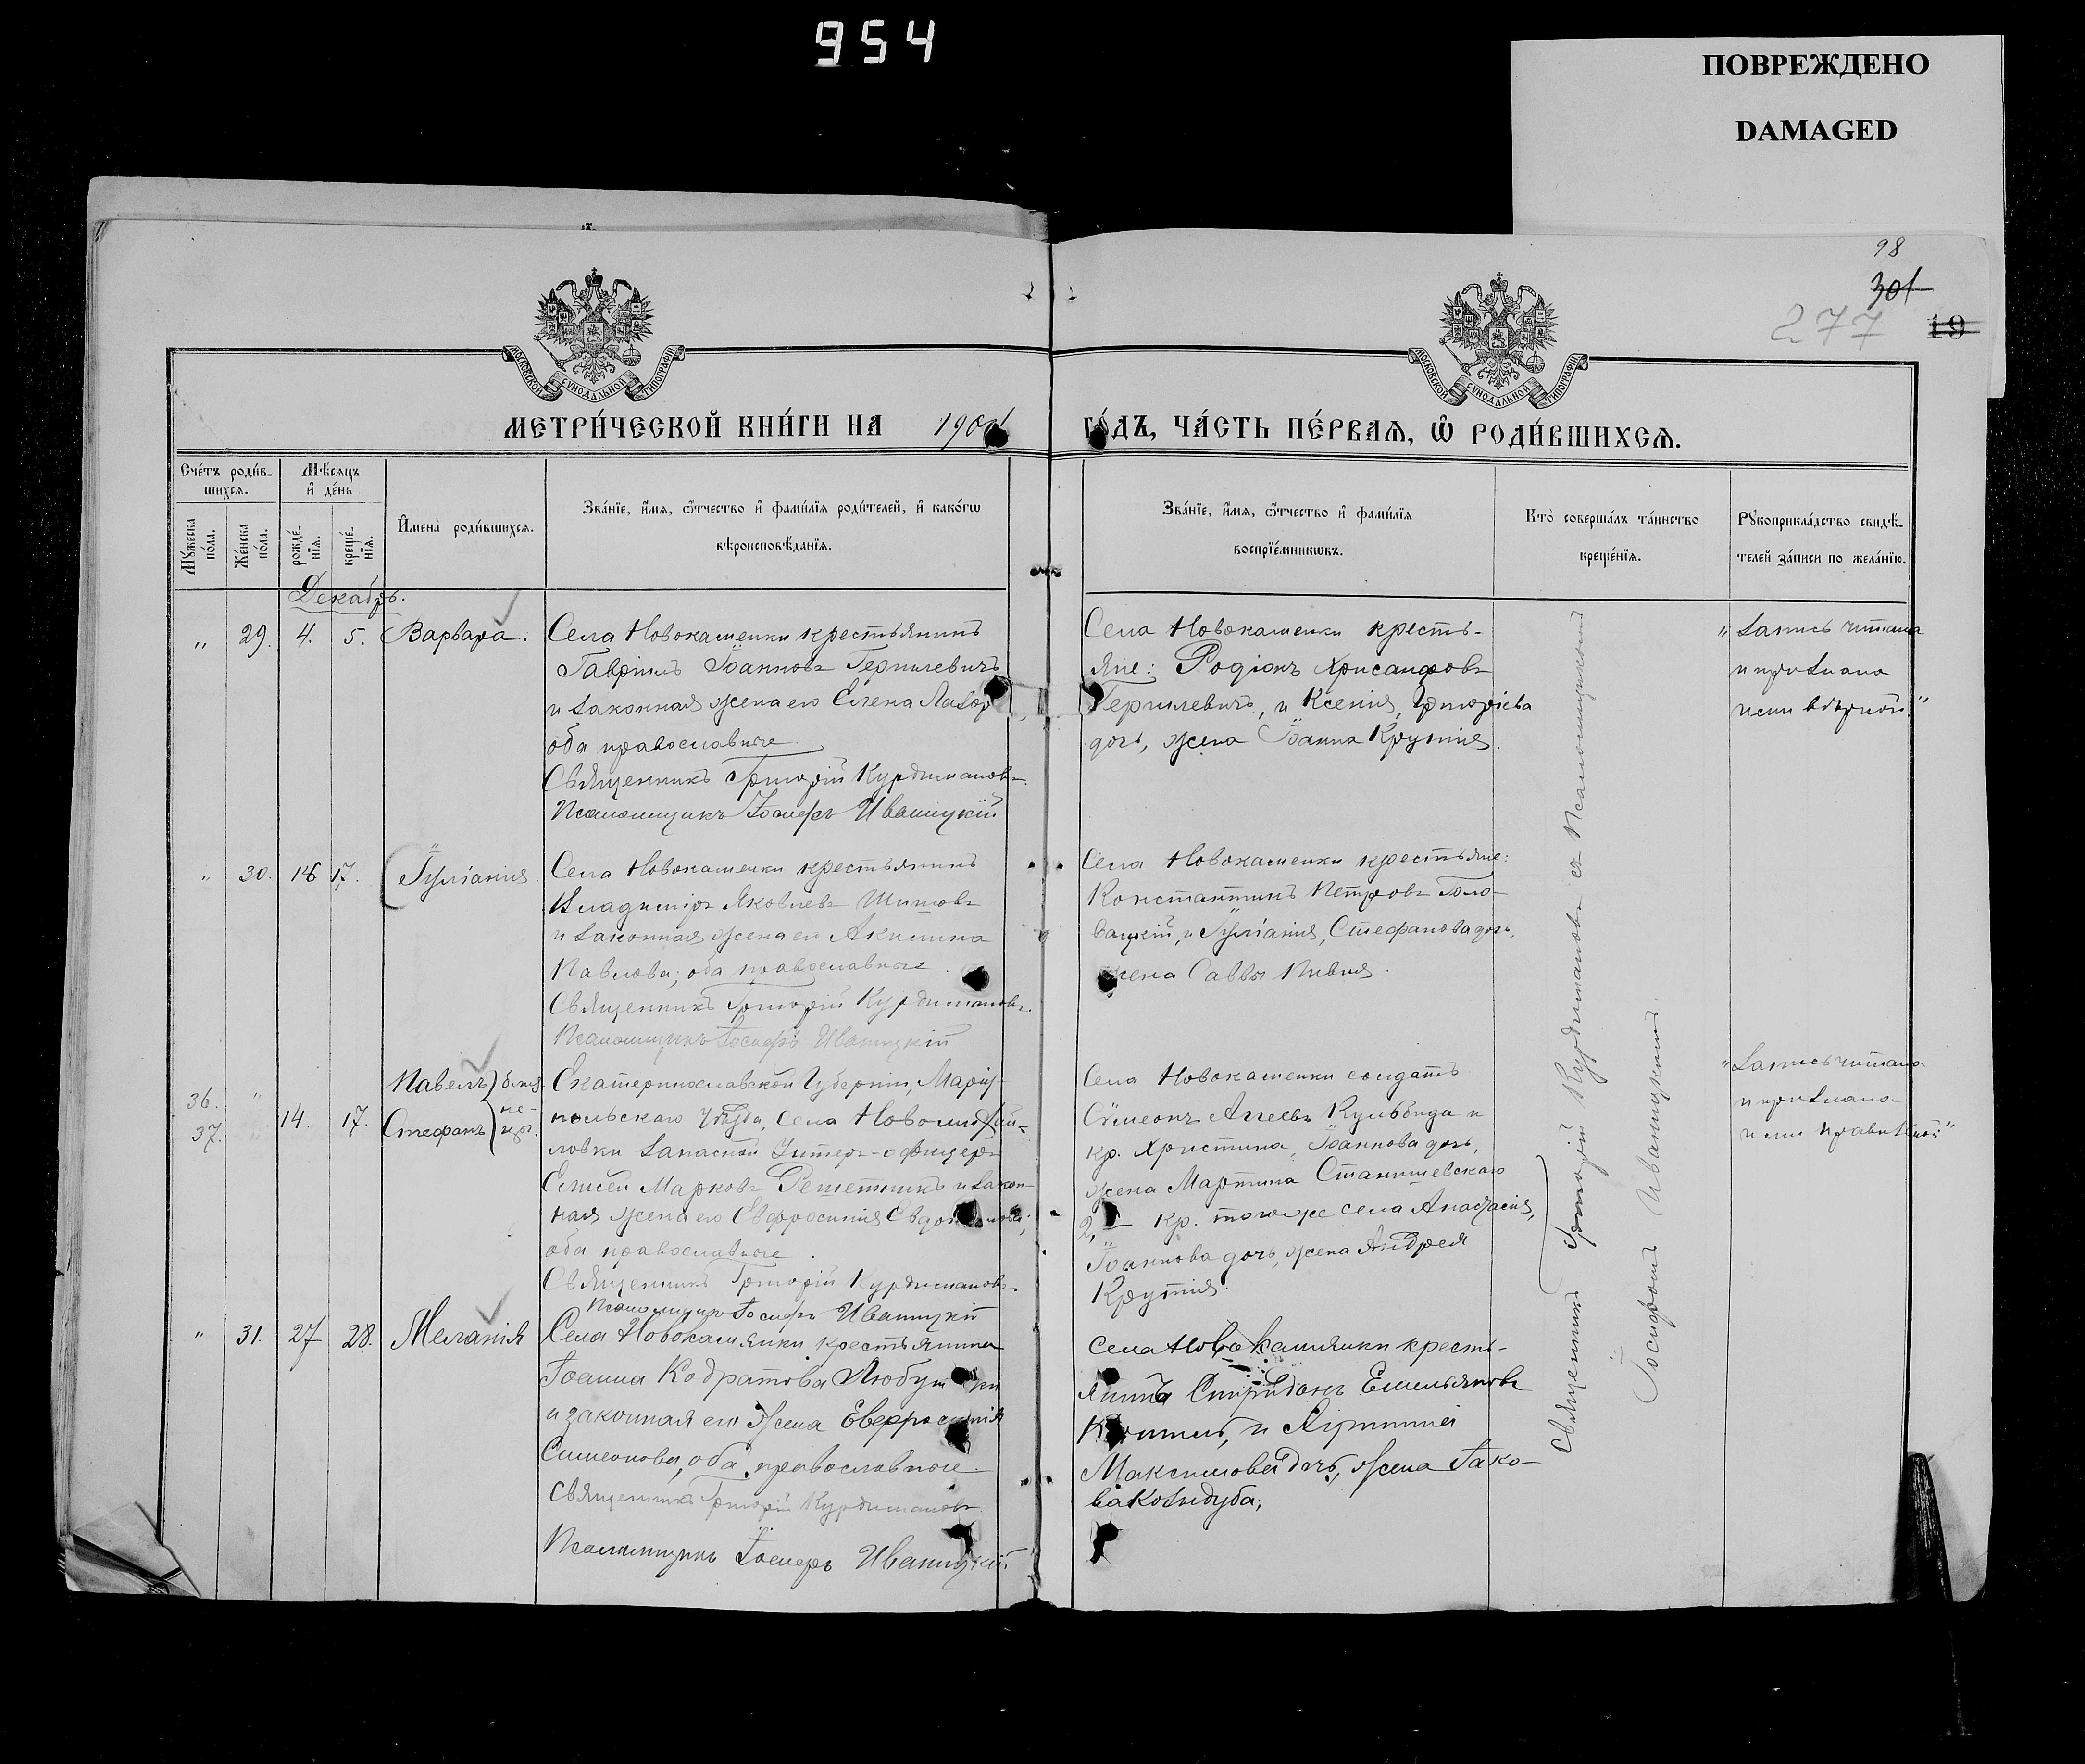 954
ПОВРЕЖДЕНО
DAMAGED
98
301
277
19
МОСКОВСКОЙ СѴНОДАЛЬНОЙ ТИПОГРАФІИ
МОСКОВСКОЙ СѴНОДАЛЬНОЙ ТИПОГРАФІИ
МЕТРИ́ЧЕСКОЙ КНИ́ГИ НА
ГО́ДЪ, ЧА́СТЬ ПЕ́РВАЯ, Ѿ РОДИ́ВШИХСЯ.
Сче́тъ роди́в-
шихся.
Мѣсяцъ
и де́нь
Мꙋжеска
по́ла.
Же́нска
по́ла.
рожде́-
нїя.
креще́-
нїя.
Имена̀ роди́вшихся.
Зва́нїе, и́мя, ѻ҆́тчество и҆ фами́лїя роди́телей, и҆ како́гѡ
вѣроисповѣ́данїя.
Зва́нїе, и́мя, ѻ҆́тчество и҆ фами́лїя
воспрїе́мникѡвъ.
Кто̀ соверша́лъ та́инство
креще́нїя.
Рꙋкоприкла́дство свидѣ́-
телей за́писи по жела́нїю.
Декабрь.
„ 29. 4. 5. Варвара.
Села Новокаменки крестьянинъ
Гавріилъ Іоанновъ
и законная жена его Елена
оба православные
Священникъ Григорій Курдимановъ
Псаломщикъ Іосифъ Иваницкій
Села Новокаменки кресть-
яне: Родіонъ Хрисанфовъ
и Ксенія, Григоріева
дочь, жена Іоанна Крутія.
„ Запись читана
и признана
нами вѣрной“
„ 30. 16 17. Іуліанія.
Села Новокаменки крестьянинъ
Владиміръ Яковлевъ Шитовъ
и законная жена его Акилина
Павлова; оба православные
Священникъ Григорій Курдимановъ.
Псаломщикъ Іосифъ Иваницкій
Села Новокаменки крестьяне:
Константинъ Петровъ Голо-
вацкій, и Іуліанія, Стефанова дочь,
жена Саввы Пивня.
36. „
37. „ 14. 17.
Павелъ близ-
Стефанъ не-
цы.
Екатеринославской Губерніи, Маріу-
польскаго Уѣзда, села Новомихай-
ловки запасной Унтеръ-офицеръ
Елисей Марковъ Решетникъ и закон-
ная жена его Евфросинія
оба православные.
Священникъ Григорій Курдимановъ
Псаломщикъ Іосифъ Иваницкій
Села Новокаменки солдатъ
Сѵмеонъ Аггеевъ Кульбида и
кр. Христина, Іоаннова дочь,
жена Мартина Станишевскаго
2, — кр. того же села Анастасія,
Іоаннова дочь, жена Андрея
Крутія.
„Запись читана
и признана
нами правильной“
„ 31. 27 28. Меланія
Села Новокамянки крестьянина
Іоанна Кодратова
и законная его жена Евфросинія
Симеонова, оба православные
Священникъ Григорій Курдимановъ
Псаломщикъ Іосифъ Иваницкій
Села Новокамянки кресть-
янинъ Спиридонъ Емельяновъ
и
Максимова дочь, жена Іако-
ва Козидуба;
Священникъ Григорій Курдимановъ съ Псаломщикомъ
Іосифомъ Иваницкимъ.